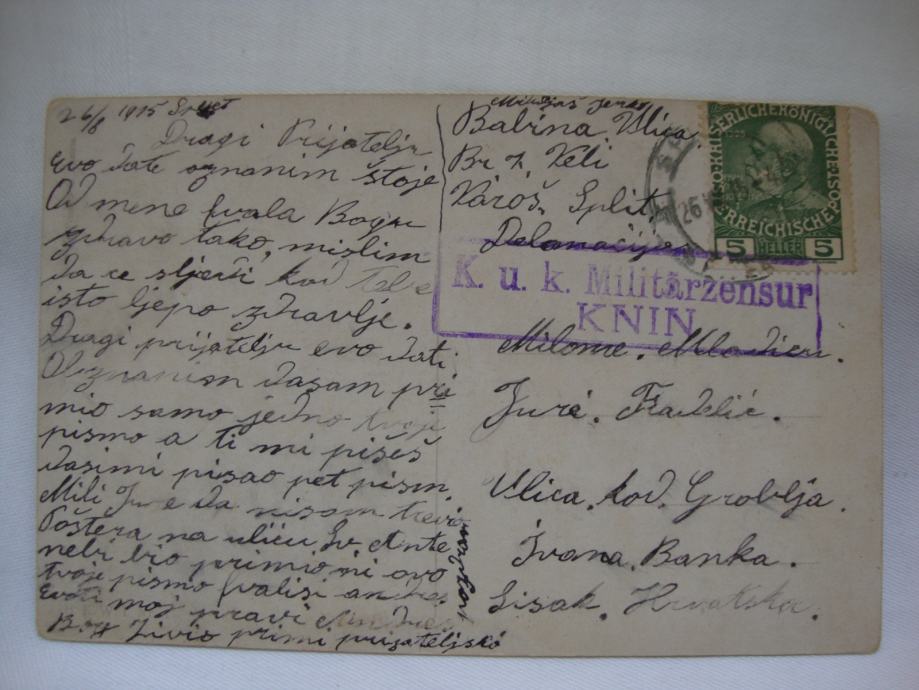 26/8 1915 Svijet
Dragi Prijatelju
Evo date oznanim štoje
Od mene fvala Bogu
zdravo tako, mislim
da ce sljeći kod Tebe
isto ljepo zdravlje.
Dragi prijatelju evo dati
Obznanim dasam pri
mio samo jedno tvoje
pismo a ti mi pišeš
dasimi pisao pet pism.
Mili Jure da nisam
Poštera na ulicu Sv Ante
nebi bio primio ni ovo
tvoje pismo fvalisi
moj pravi
Bog Živio primi prijateljskó
Jerko
Babina Ulica
Br 7, Veli
Varoš, Split
Dalmacija
KAISERLICHEKÖNIGLICHE
ÖSTERREICHISCHE POST
5 HELLER 5
26
K. u. k. Militärzensur
KNIN
Milome. Mladicu.
Jure. Fradelić.
Ulica. kod. Groblja
Ivana. Banka.
Sisak. Hrvatska.